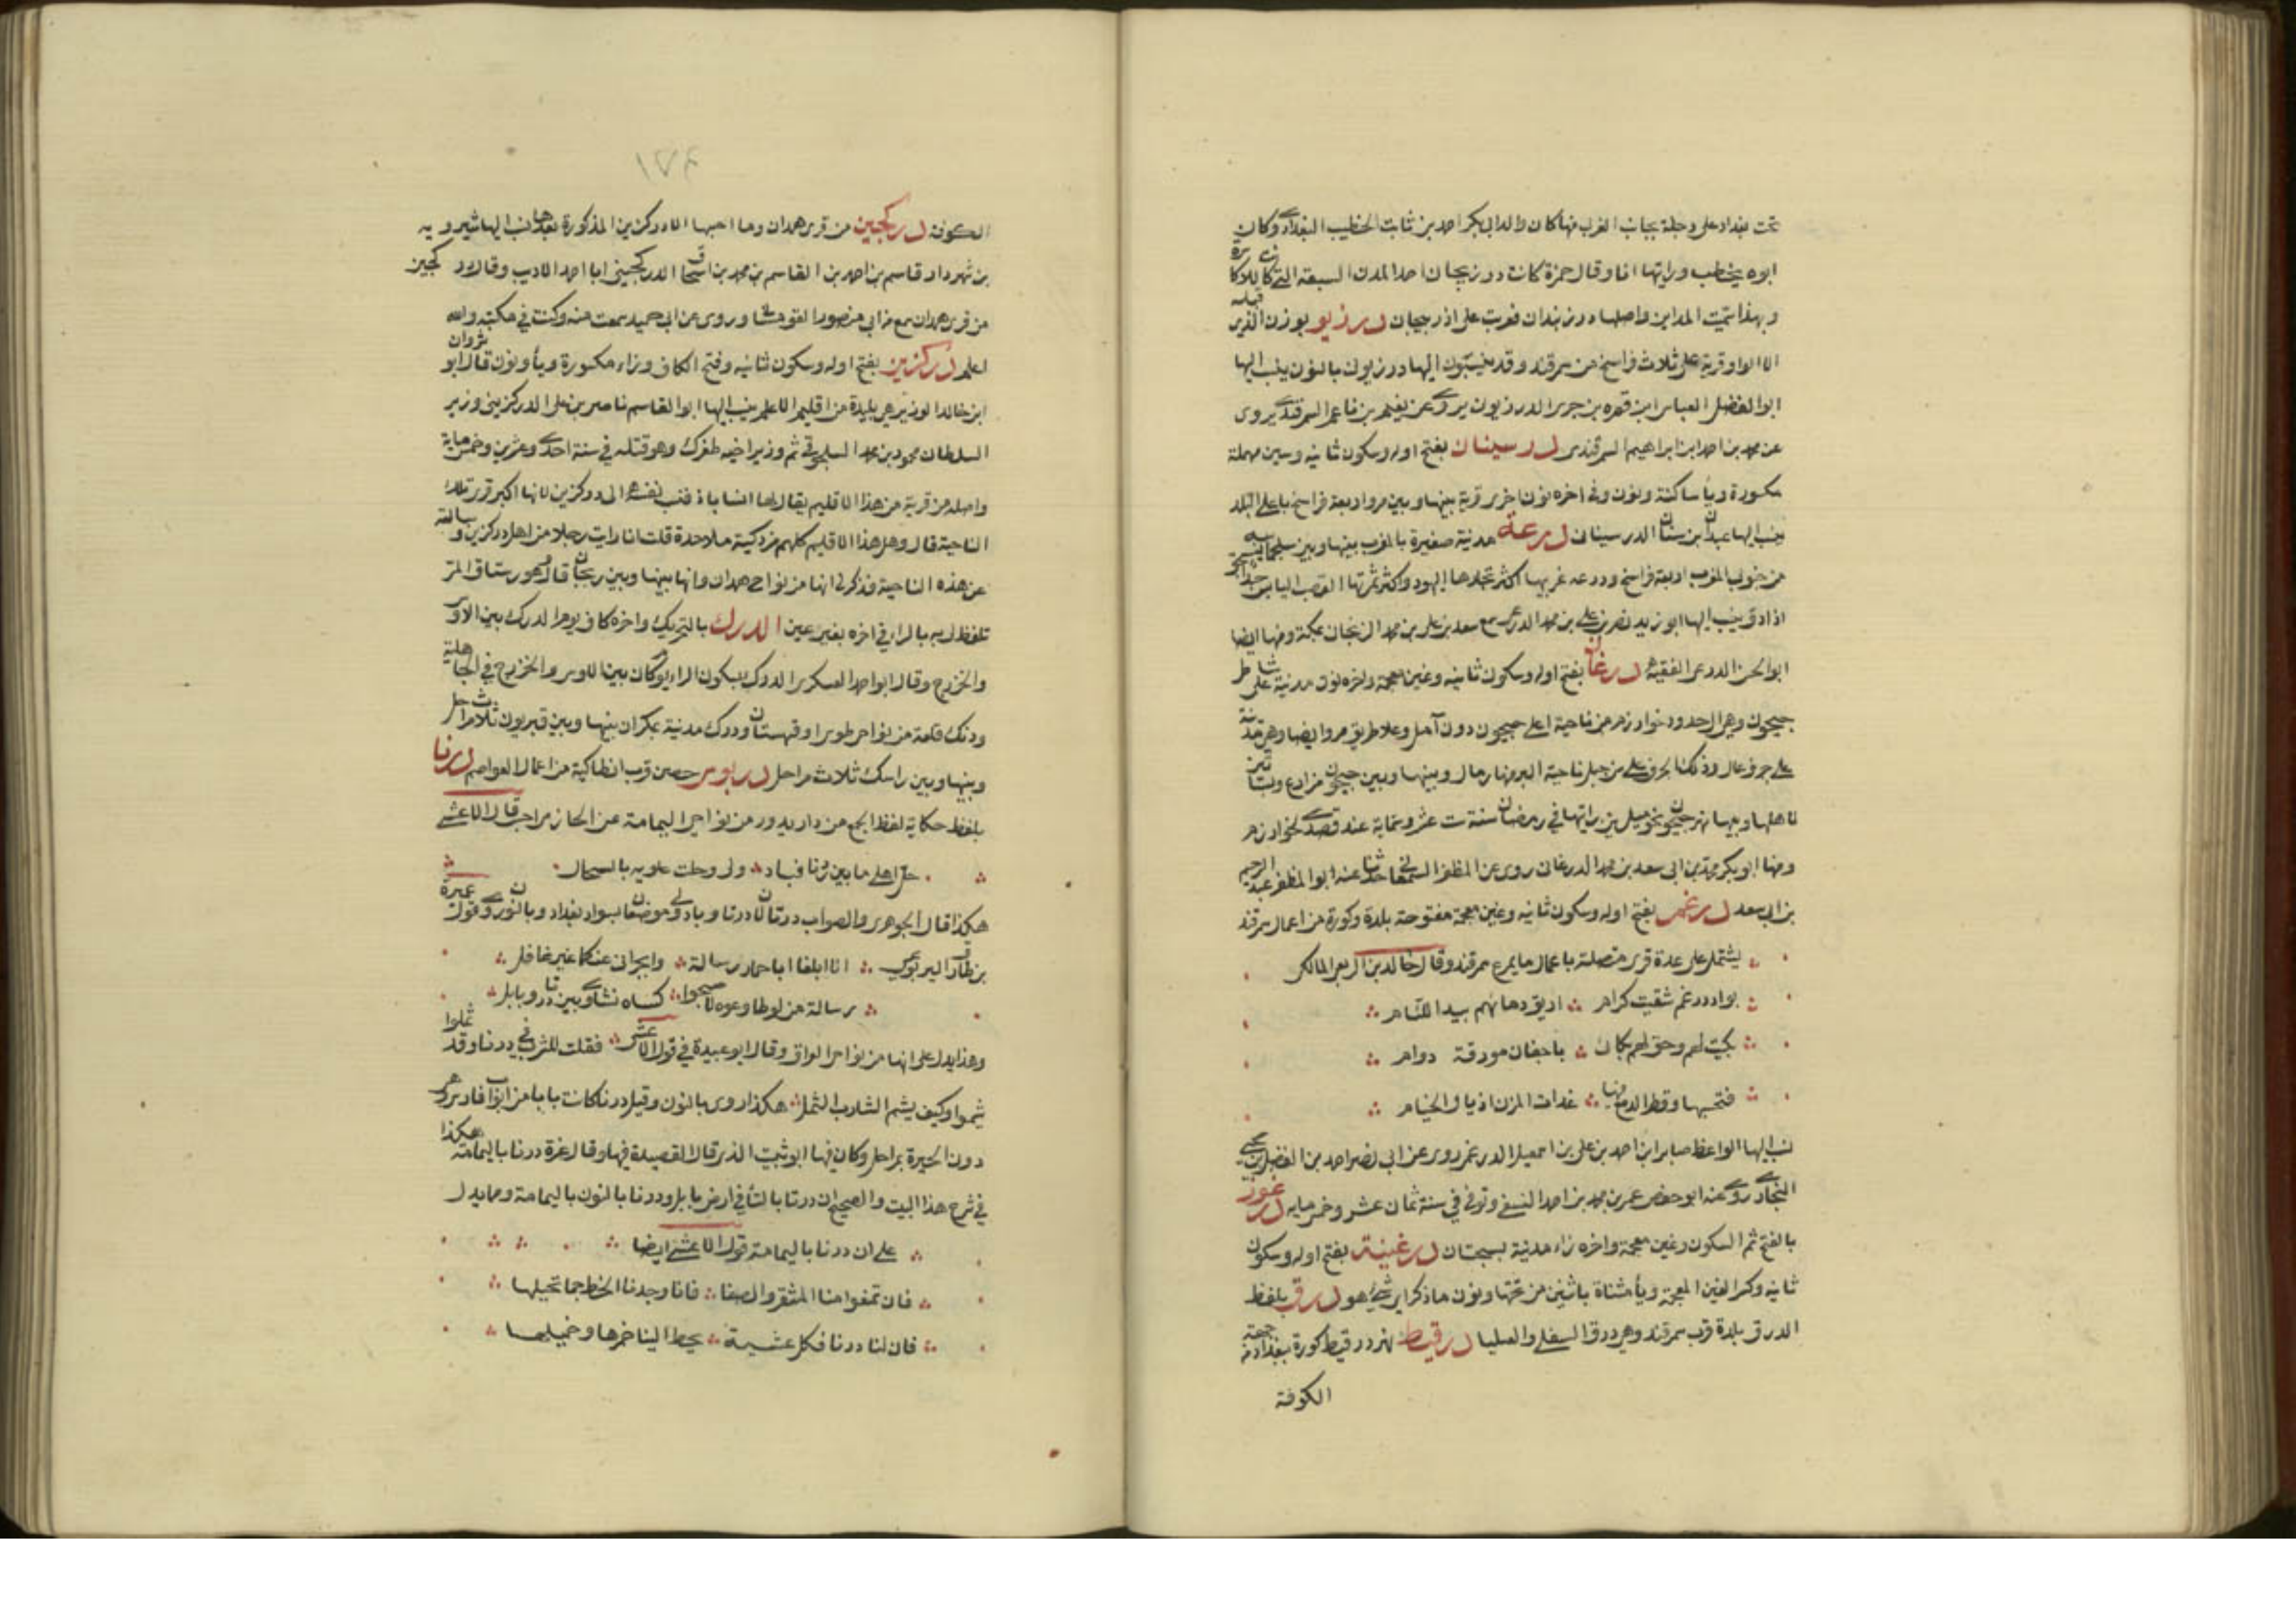 تحت بغداد على دجلة بجانب الغرب منها كان والد ابي بكر احمد بن ثابت الخطيب البغدادي وكان
ابوه يخطب ورايتها انا وقال حمزة كانت درزيجان احدا المدن السبعة التي كا للاكا
وبهذا سميت المداين واصلها درزبندان فعربت على درزيجان درزيو بوزن الذي قبله
الا الواو قرية على ثلاث فراسخ من سمرقند وقد ينسبون اليها درزيون بالنون ينسب اليها
ابو الفضل العباس ابن بن جرير الدرزيوني يروي عن نعيم بن ناعم السمرقندي يروي
عن محمد بن احمد ابن ابراهيم السمرقندي درسينان بفتح اوله وسكون ثانيه وسين مهملة
مكسورة ويأ ساكنة ونون وفي اخره نون اخرى قرية بينها وبين مرو اربعة فراسخ باعلى البلد
ينسب اليها عبدان ابن سنان الدرسيناني درعة مدنية صغيرة بالمغرب بينها وبين سجلماسه
من جنوب المغرب اربعة فراسخ ودرعه غربيها اكثر تجارها اليهود واكثر ثمرتها القصب اليابس
ينسب اليها ابو زيد نصر بن علي بن محمد الدرعي سمع سعد بن علي بن محمد الزنجان بمكة ومنها ايضا
ابو الحسن الدرعي الفقيه درغان بفتح اوله وسكون ثانيه وغين معجمة واخره نون مدنية على شاطي
جيحون وهي اول حدود خوارزم من ناحية اعلى جيحون دون آمل وعلا طريق مرو ايضا وهي مدنة
على جرف عال وذلك الجرف على سن جبل ناحية البر منها رمال وبينها وبين جيحون مزارع وبساتين
لاهلها وبينها نهر جيحون نحو ميلين رايتها في رمضان سنة ست عشر وستماية عند قصدي لخوارزم
ومنها ابو بكر محمد بن ابي سعد بن محمد الدرغاني روى عن المظفر السمعاني حدثنا عنه ابو المظفر عبد الرحيم
بن ابي سعد درغم بفتح اوله وسكون ثانيه وغين معجمة مفتوحة بلدة وكورة من اعمال سمرقند
يشتمل على عدة قرى متصلة باعمال مايمرغ سمرقند وقال خالد بن الربيع المالكي
بوادي درغم شقيت كرام اريق دماهم بيد اللئام
بكيت لهم وحق لهم بكائ باجفان مورقة دوام
فتحسبها وقطر الدمع منها غداة المزن اذيال الخيام
نسب اليها الواعظ صابر ابن احمد بن علي بن اسمعيل الدرغمي روى عن ابي نصر احمد بن الفضل بن يحيى
البخاري روى عنه ابو حفص عمر بن محمد بن احمد النسفي وتوفي في سنة ثمان عشر وخمسمايه درغوز
بالفتح ثم السكون وغين معجمة واخره زاء مدنية بسجستان درغينة بفتح اوله وسكون
ثانيه وكسر الغين المعجمة ويأ مثناة باثنين من تحتها ونون ما ذكر اي شيئ هو درق بلفظ
الدرق بلدة قرب سمرقند وهي درق السفلى والعليا درقيط نهر درقيط كورة ببغداد من جهة
الكوفة
١٧٤
الكوفة دركجين من قرى همدان وما احسبها الا دركزين المذكورة بعدها نسب اليها شيرويه
بن شهردار قاسم بن احمد بن القاسم بن محمد بن اسحاق الدركجيني ابا احمد الاديب وقال دركجين
من قرى همدان سمع من ابي منصور القومساني وروى عن ابي حميد سمعت منه وكنت في مكتبه والله
اعلم دركزين بفتح اوله وسكون ثانيه وفتح الكاف وزاء مكسورة ويأ ونون قال ابو
ابن خالد الوزير هي بليدة من اقليم الاعلم ينسب اليها ابو القاسم ناصر بن علي الدركزيني وزير
السلطان محمود بن محمد السلجوقي ثم وزير اخيه طغرك وهو قتله في سنة احدى وعشرين وخمسماية
واصله من قرية من هذا الاقليم يقال لها انساباذ فنسب نفسه الى دركزين لانها اكبر قرى تلك
الناحية قال وهل هذا الاقليم كلهم مزدكية ملاحدة قلت انا رايت رجلا من اهل دركزين وسالته
عن هذه الناحية فذكر لي انها من نواحي همدان وانها بينها وبين زنجان قال وهو رستاق المر
تلفظ لي به بالراء في اخره بغير عين الدرك بالتحريك واخره كاف يوم الدرك بين الاوس
والخزرج وقال ابو احمد العسكري الدرك بسكون الراء يوم كان بين الاوس والخزرج في الجاهلية
ودرك قلعة من نواحي طوس او قهستان ودرك مدنية بمكران بينها وبين قنربون ثلاث مراحل
وبينها وبين راسك ثلاث مراحل دربوس حصن قرب انطاكية من اعمال العواصم درنا
بلفظ حكاية لفظ الجمع من دار يدور من نواحي اليمامة عن الحازمي احب قال الاعشى
حل اهلي ما بين درنا فبادو لى وحلت علويه بالسحال
هكذا قال الجوهري والصواب درتا لان درتا وبادولي موضعان بسواد بغداد وبالنون روي قول عميرة
بن طارق اليربوعي الا ابلغا ابا حمار رسالة واخبراني عنكما غير غافل
رسالة من لو طاوعوه لاصبحوا كساه نشاوى بين درتا وبابل
وهذا يدل على انها من نواحي العراق وقال ابو عبيدة في قول الاعشى فقلت للشرب في درنا وقد ثملوا
شيموا وكيف يشيم الشارب الثمل هكذا روى بالنون وقيل درنا كانت بابا من ابواب فارس وهي
دون الحيرة بمراحل وكان فيها ابو ثبيت الذي قال القصيدة فيها وقال غيره درنا باليمامة هكذا
في شرح هذا البيت والصحيح ان درتا بالتأ في ارض بابل ودرنا بالنون باليمامة ومما يدل
على ان درنا باليمامة قول الاعشى ايضا
فان تمنعوا منا المشقر والصفا فانا وجدنا الخط جما نخيلها
فان لنا درنا فكل عشية يحط الينا خمرها وخميلها